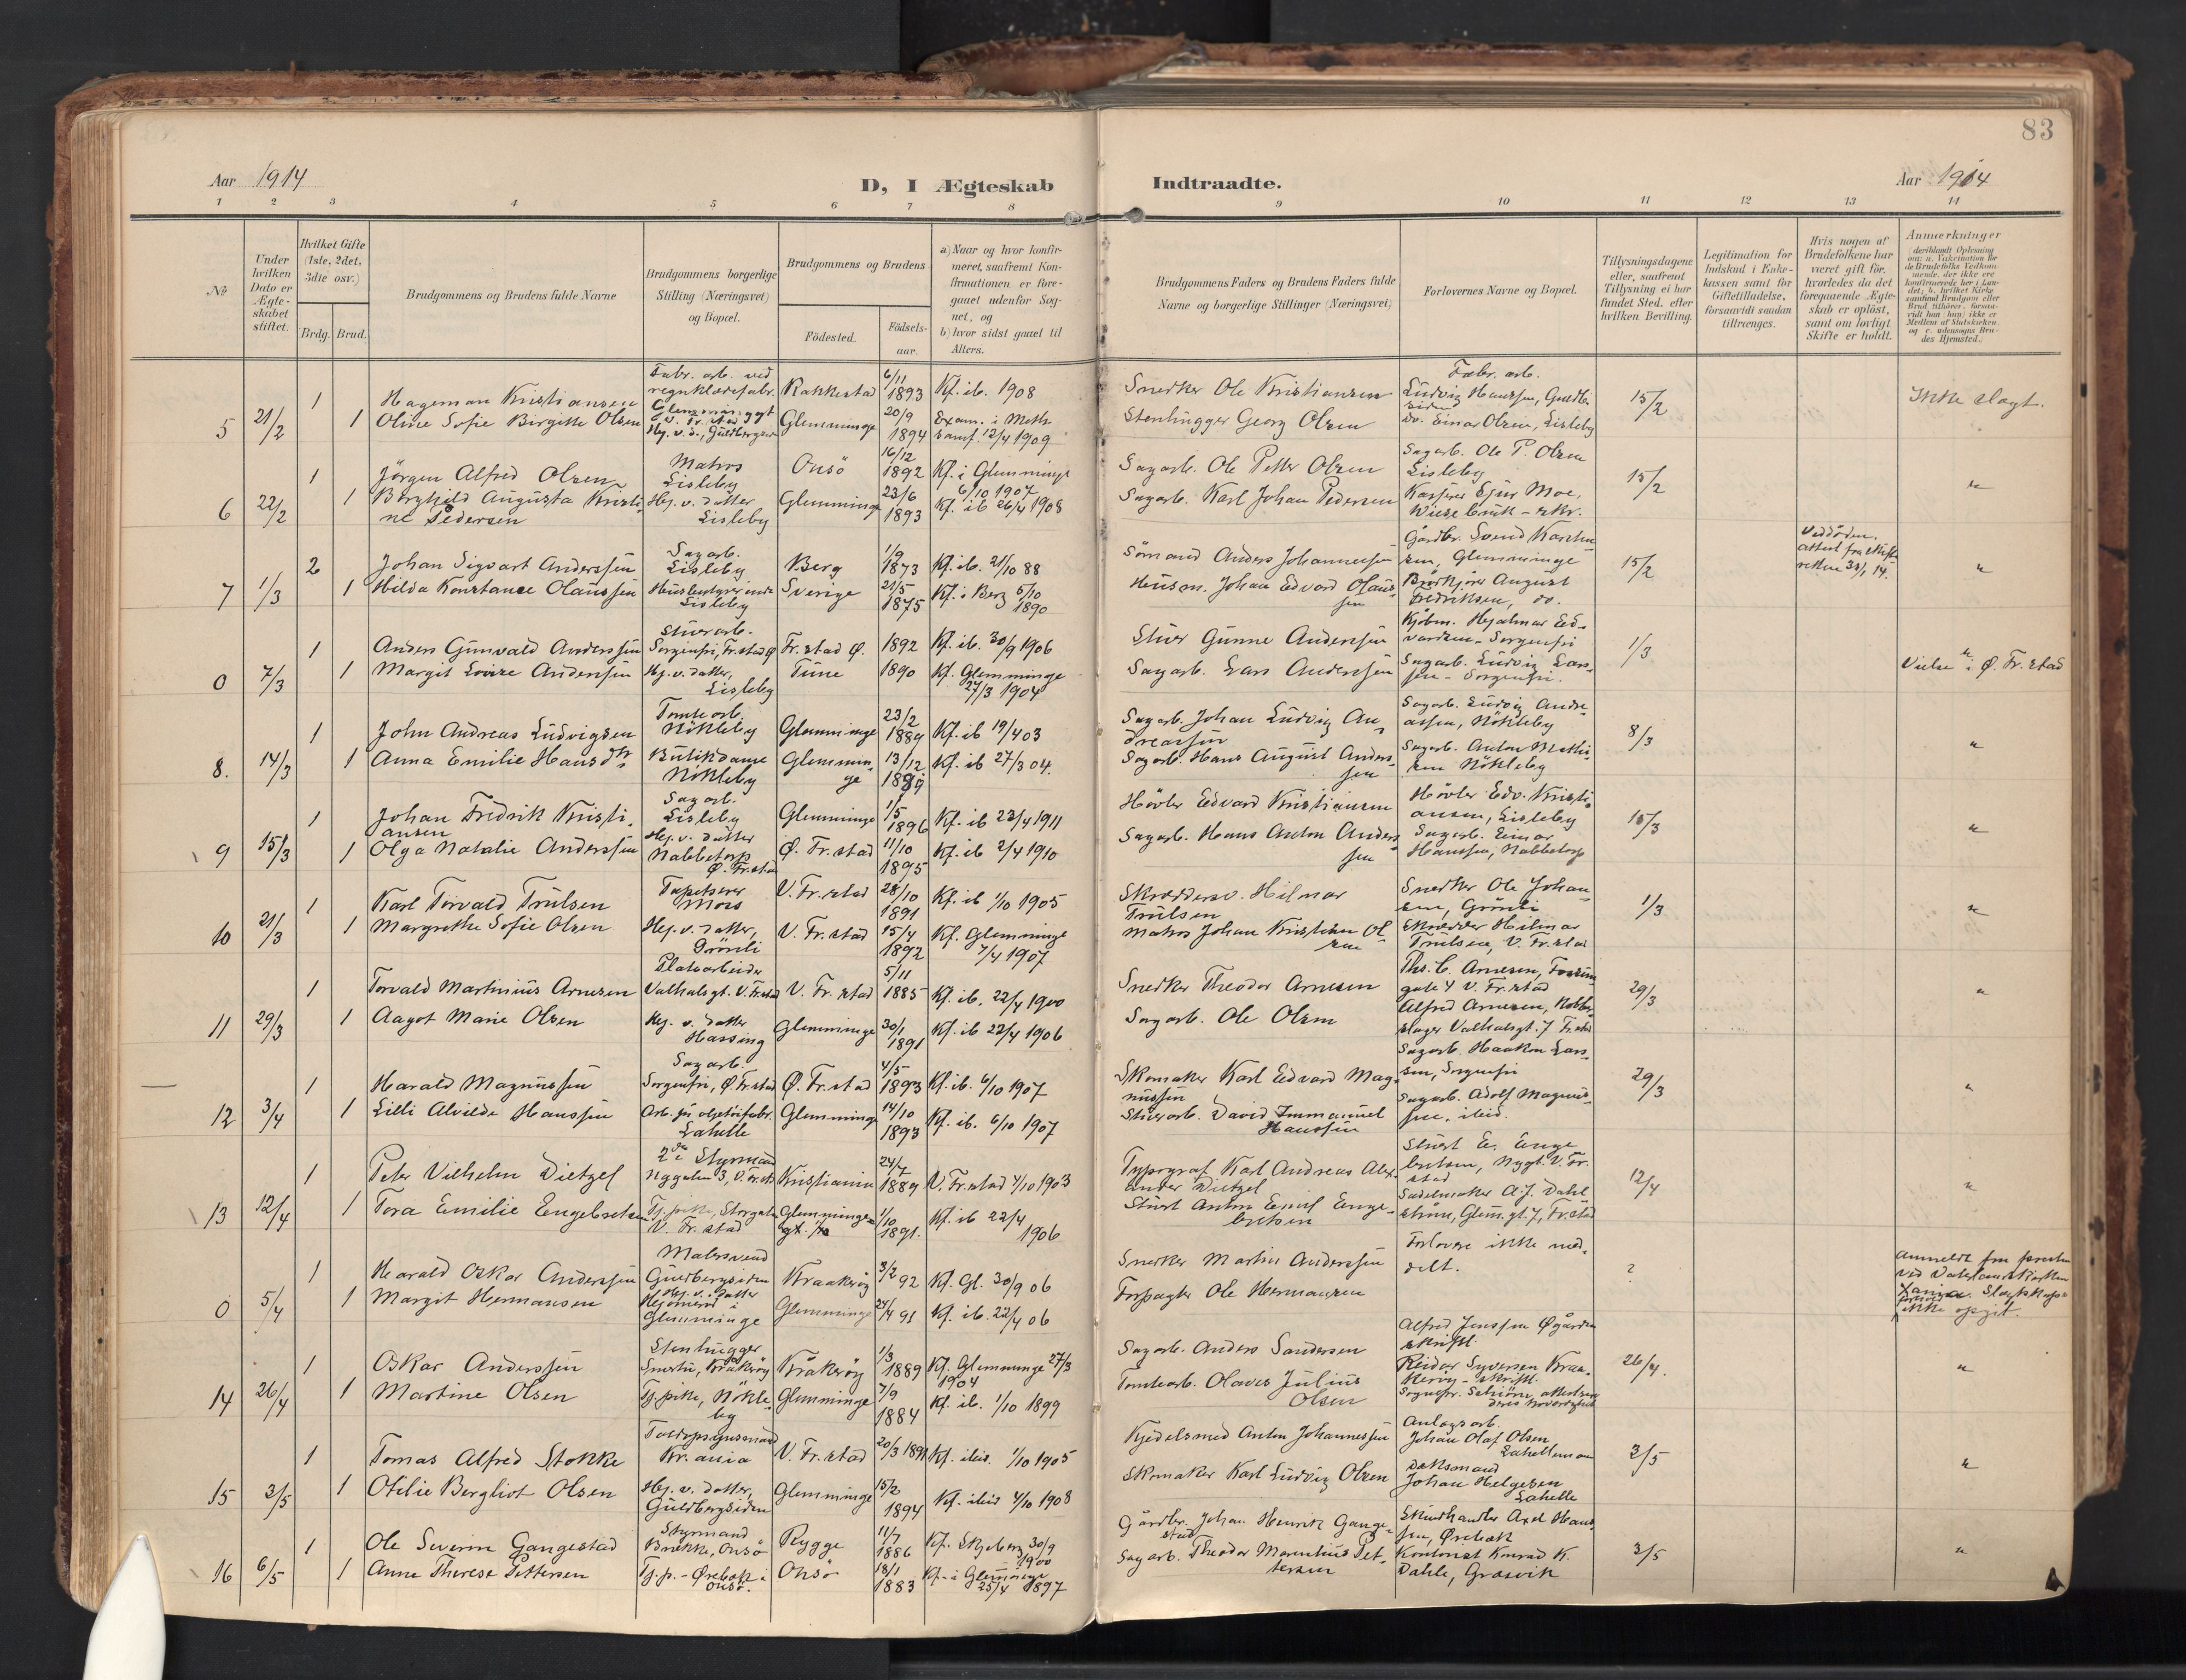 83
Aar 1914
D, I Ægteskab
Indtraadte.
Aar 1914
1 2 3 4 5 6 7 8 9 10 11 12 13 14
No
Under hvilken Dato er Ægteskabet stiftet.
Hvilket Gifte (1ste, 2det, 3die osv.)
Brdg. Brud.
Brudgommens og Brudens fulde Navne
Brudgommens borgerlige Stilling (Næringsvei) og Bopæl.
Brudgommens og Brudens
Födested.
Födsels-aar.
a) Naar og hvor konfir-
meret, saafremt Kon-
firmationen er fore-
gaaet udenfor Sog-
net, og
b) hvor sidst gaaet til
Alters.
Brudgommens Faders og Brudens Faders fulde
Navne og borgerlige Stillinger (Næringsvei)
Forlovernes Navne og Bopæl.
Tillysningsdagene
eller, saafremt
Tillysning ei har
fundet Sted, efter
hvilken Bevilling.
Legitimation for
Indskud i Enke-
kassen samt for
Giftetilladelse,
forsaavidt saadan
tiltrænges.
Hvis nogen af
Brudefolkene har
været gift før,
hvorledes da det
foregaaende Ægte-
skab er oplöst,
samt om lovligt
Skifte er holdt.
Anmærkninger
5 21/2
1 Hageman Kristiansen
Fabr. arb. ved
regnklædefabr.
Rakkestad 6/11 1893 Kf. ib. 1908
Snedker Ole Kristiansen
Fabr. arb.
Ludvig Hanssen, Guldb.
siden
15/2
Ikke slægt.
1 Oline Sofie Birgitte Olsen
Hj. v. d., Guldbergsd
Glemminge 20/9 1894 Exam. i Meth.
samf. 12/4 1909
Stenhugger Georg Olsen
do. Einar Olsen, Lisleby
6 22/2
1 Jörgen Alfred Olsen
Matros
Lisleby
Onsö 16/12 1892 Kf. i Glemminge
6/10 1907
Sagarb. Ole Petter Olsen
Sagarb. Ole P. Olsen
Lisleby
15/2
"
1 Borghild Augusta Kristi-
ne Pedersen
Hj. v. datter
Lisleby
Glemminge 23/6 1893 Kf. ib 26/4 1908
Sagarb. Karl Johan Pedersen
Kasserer Ejnar Moe,
Wiese bruk - skr.
7 1/3
2 Johan Sigvart Anderssen
Sagarb.
Lisleby
Berg 1/9 1873 Kf. ib. 21/10 88
Sömand Anders Johannessen
Gårdbr. Svend Karlsen
Glemminge
15/2
Ved döden.
attest fra skifte
retten 30/1 14.
"
1 Hilda Konstance Olaussen
Husbestyrerinde
Lisleby
Sverige 21/5 1875 Kf. i Berg 5/10
1890
Husm. Johan Edvard Olaus-
sen
August
Fredriksen, do.
0 7/3
1 Anders Gunvald Anderssen
Stuerarb.
Sorgenfri, Fr.stad Ø
Fr.stad Ø. 1892 Kf. ib. 30/9 1906
Stuer Gunne Anderssen
Kjöbm. Hjalmar Ed-
vardsen - Sorgenfri
1/3
"
Vielse i Ø. Fr.stad
1 Margit Lovise Anderssen
Hj. v. datter,
Lisleby
Tune 1890 Kf. Glemminge
27/3 1904
Sagarb. Lars Anderssen
Sagarb. Ludvig Lars-
sen - Sorgenfri.
8. 14/3
1 John Andreas Ludvigsen
Tomtearb.
Nökleby
Glemminge 23/2 1889 Kf. ib 19/4 03
Sagarb. Johan Ludvig An-
dreassen
Sagarb. Ludvig Andre-
assen, Nökleby
8/3
"
1 Anna Emilie Hansdtr
Butikdame
Nökleby
Glemmin-
ge 13/12 Kf. ib 27/3 04.
Sagarb. Hans August Anders-
sen
Sagarb. Anton Mathi-
sen Nökleby
9 15/3
1 Johan Fredrik Kristi-
ansen
Sagarb.
Lisleby
Glemminge 1/5 1896 Kf. ib 23/4 1911
Hövler Edvard Kristiansen
Hövler Edv. Kristi-
ansen, Lisleby
15/3
"
1 Olga Natalie Anderssen
Hj. v. datter
Nabbetorp
Ø. Fr.stad
Ø. Fr.stad 11/10 1895 Kf. ib 2/4 1910
Sagarb. Hans Anton Anders-
sen
Sagarb. Einar
Hanssen, Nabbetorp
10 21/3
1 Karl Torvald Trulsen
Tapetserer
Moss
V. Fr.stad 28/10 1891 Kf. ib 1/10 1905
Skræddersv. Hilmar
Trulsen
Snedker Ole Johan-
sen, Grönli
1/3
"
1 Margrethe Sofie Olsen
Hj. v. datter,
Grönli
V. Fr.stad 15/4 1892 Kf. Glemminge
7/4 1907
Matros Johan Kristian Ol-
sen
Skrædder Hilmar
Trulsen, V. Fr.stad
11 29/3
1 Torvald Martinius Arnesen
Platearbeider
Valhalsgt. V. Fr.stad
V. Fr.stad 5/11 1885 Kf. ib. 22/4 1900
Snedker Theodor Arnesen
Ths. C. Arnesen,
gate 4 V. Fr.stad
29/3
"
1 Aagot Marie Olsen
Hj. v. datter
Hassing
Glemminge 30/1 1891 Kf. ib 22/4 1906
Sagarb. Ole Olsen
Alfred Arnesen, Kobber-
slager Valhalsgt. 7 Fr.stad
12 3/4
1 Harald Magnussen
Sagarb.
Sorgenfri, Ø. Fr.stad
Ø. Fr.stad 4/5 1893 Kf. ib. 6/10 1907
Skomaker Karl Edvard Mag-
nussen
Sagarb. Haakon Lars-
sen, Sorgenfri
29/3
"
1 Lilli Alvilde Hanssen
Arb. på oljetöifabr.
Lahelle
Glemminge 14/10 1893 Kf. ib. 6/10 1907
Stuerarb. David Immanuel
Hanssen
Sagarb. Adolf Magnus-
sen, ibid.
13 12/4
1 Peter Vilhelm Dietzel
2den Styrmand
Nygaten 3, V. Fr.st.
Kristiania 24/7 1889 V. Fr.stad 4/10 1903
Typograf Karl Andreas Alex-
ander Dietzel
Stuert E. Enge-
bretsen, Nygt. V. Fr.
stad
12/4
"
1 Tora Emilie Engebretsen
Tj.pike, Storgaten
V. Fr.stad
Glemminge 1/10 1891. Kf. ib 22/4
1906
Stuert Anton Emil Enge-
bretsen
Sadelmaker A. J. Dahl-
ström, Glem.gt. 7, Fr.stad
0 5/4
1 Harald Oskar Anderssen
Malersvend
Guldbergsiden
Kraakeröy 3/2 92 Kf. Gl. 30/9 06
Snedker Martin Anderssen
Forlovere ikke med-
delt.
?
Anmeldt fra presten
ved Vaterlandskirken
Slægtskap
ikke opgit.
1 Margit Hermansen
Hj. v. datter
Glemminge
Glemminge 24/4 91 Kf. ib. 22/4 06
Forpagter Ole Hermansen
14 26/4
1 Oskar Anderssen
Stenhugger
Kråkeröy
Kråkeröy 1/3 1889 Kf. Glemminge 27/3
1904
Sagarb. Anders Sandersen
Alfred Jenssen Øgården
skriftl.
26/4.
"
1 Martine Olsen
Tj.pike, Nökle-
by
Glemminge 7/9 1884 Kf. ib. 1/10 1899
Tomtearb. Olaves Julius
Olsen
Reidar Syversen Kraa-
keröy - skriftl.
15 3/5
1 Tomas Alfred Stokke
Toldopsynsmand
Kr.ania
V. Fr.stad 20/3 1891 Kf. ibid. 1/10 1905
Kjedelsmed Anton Johannessen
Anlægsarb.
Johan Olaf Olsen
3/5
"
1 Otilie Bergliot Olsen
Hj. v. datter,
Guldbergsiden
Glemminge 15/2 1894 Kf. ibid 4/10 1908
Skomaker Karl Ludvig Olsen
Johan Helgesen
Lahelle
16 6/5
1 Ole Severin Gangestad
Styrmand
Brekke, Onsö
Rygge 11/7 1886 Kf. Skjeberg 30/9
1900
Gårdbr. Johan Henrik Gange-
stad
Skindhandler Axel Hans-
sen, Örebæk
3/5
"
1 Anne Therese Pettersen
Tj.p. - Örebæk i
Onsö.
Onsö 18/1 1883 Kf. i Glemminge
25/4 1897
Sagarb. Theodor Marentius Pet-
tersen
Kontorist Konrad K.
Dahle, Græsvik